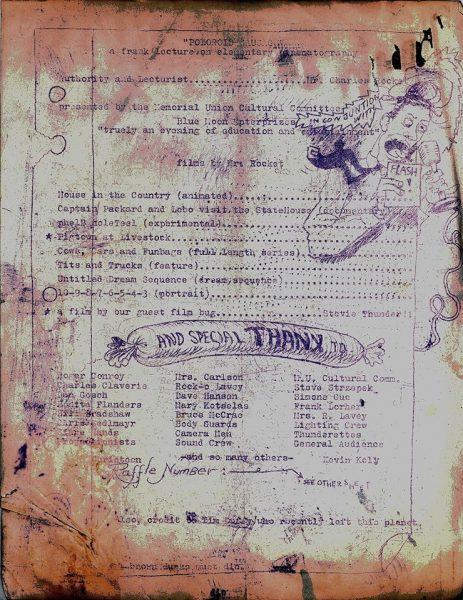 "POBOROID
a frank lecture on elementary cinematography
Authority and Lecturist....................Mr. Charles Rocke
presented by the Memorial Union Cultural Committee
IN CONJUNCTION WITH
Blue Moon Enterprises
"truely an evening of education and entertainment"
FLASH
films by Mr. Rocket
House in the Country (animated)
Captain Packard and Lobo visit the StateHouse (documentary)
(expbrimental)
Pigtown at Livestock
Cows, Cars and Funbags (full length series)
Tits and Trucks (feature)
Untitled Dream Sequence (dream sequence)
10-9-8-7-6-5-4-3 (portrait)
a film by our guest film bug......Stevie Thunder!!
AND SPECIAL THANX TO
Roger Conroy Mrs. Carlson M.U. Cultural Comm.
Charles Claverie Rock-o Lavoy Steve Strzepek
Gosch Dave Hanson Simone Gue
Flanders Mary Kotselas Frank Lerher
Bradshaw Bruce McCrae Mrs. R. Lavey
Chris Body Guards Lighting Crew
Camera Men Thunderettes
Sound Crew General Audience
-and so many others- Kevin Kely
Raffle Number:
SEE OTHER SHEET
Also, credit to Tim Duffy who recently left this planet
must die.